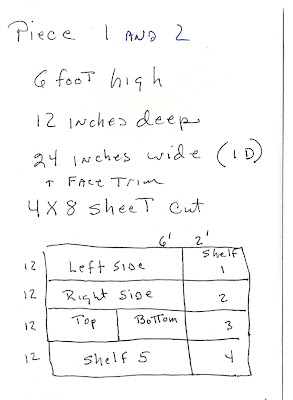 Piece 1 AND 2
6 foot high
12 inches deep
24 inches wide (ID)
+ Face Trim
4X8 sheet cut
6' 2'
12 Left Side Shelf 1
12 Right Side 2
12 Top Bottom 3
12 Shelf 5 4